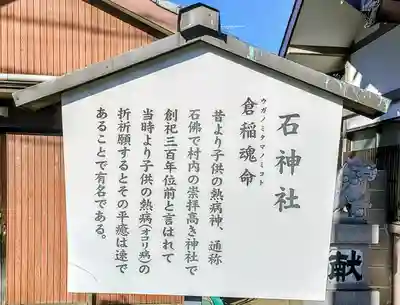 石神社
ウガノミタマノミコト
倉稲魂命
昔より子供の熱病神、通称
石佛で村内の崇拝高き神社で
創祀三百年位前と言はれて
当時より子供の熱病(オコリ病)の
折祈願するとその平癒は遠で
あることで有名である。
献